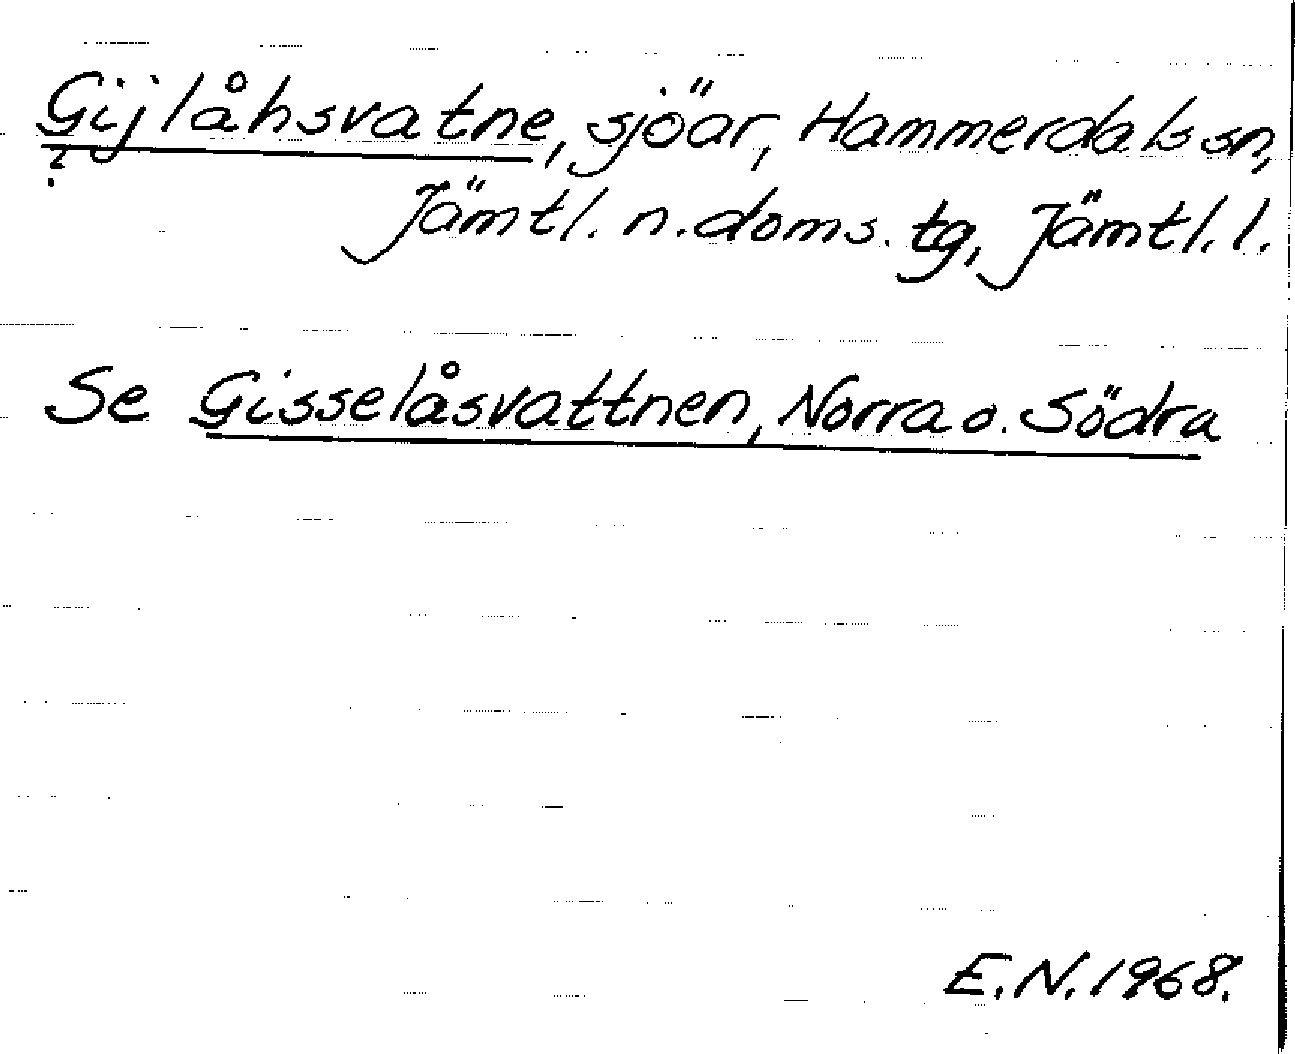 Gijlåhsvatne, sjöar, Hammerdals sn,
Jämtl. n. doms. tg, Jämtl. l.
Se Gisselåsvattnen, Norra o. Södra
E.N. 1968.